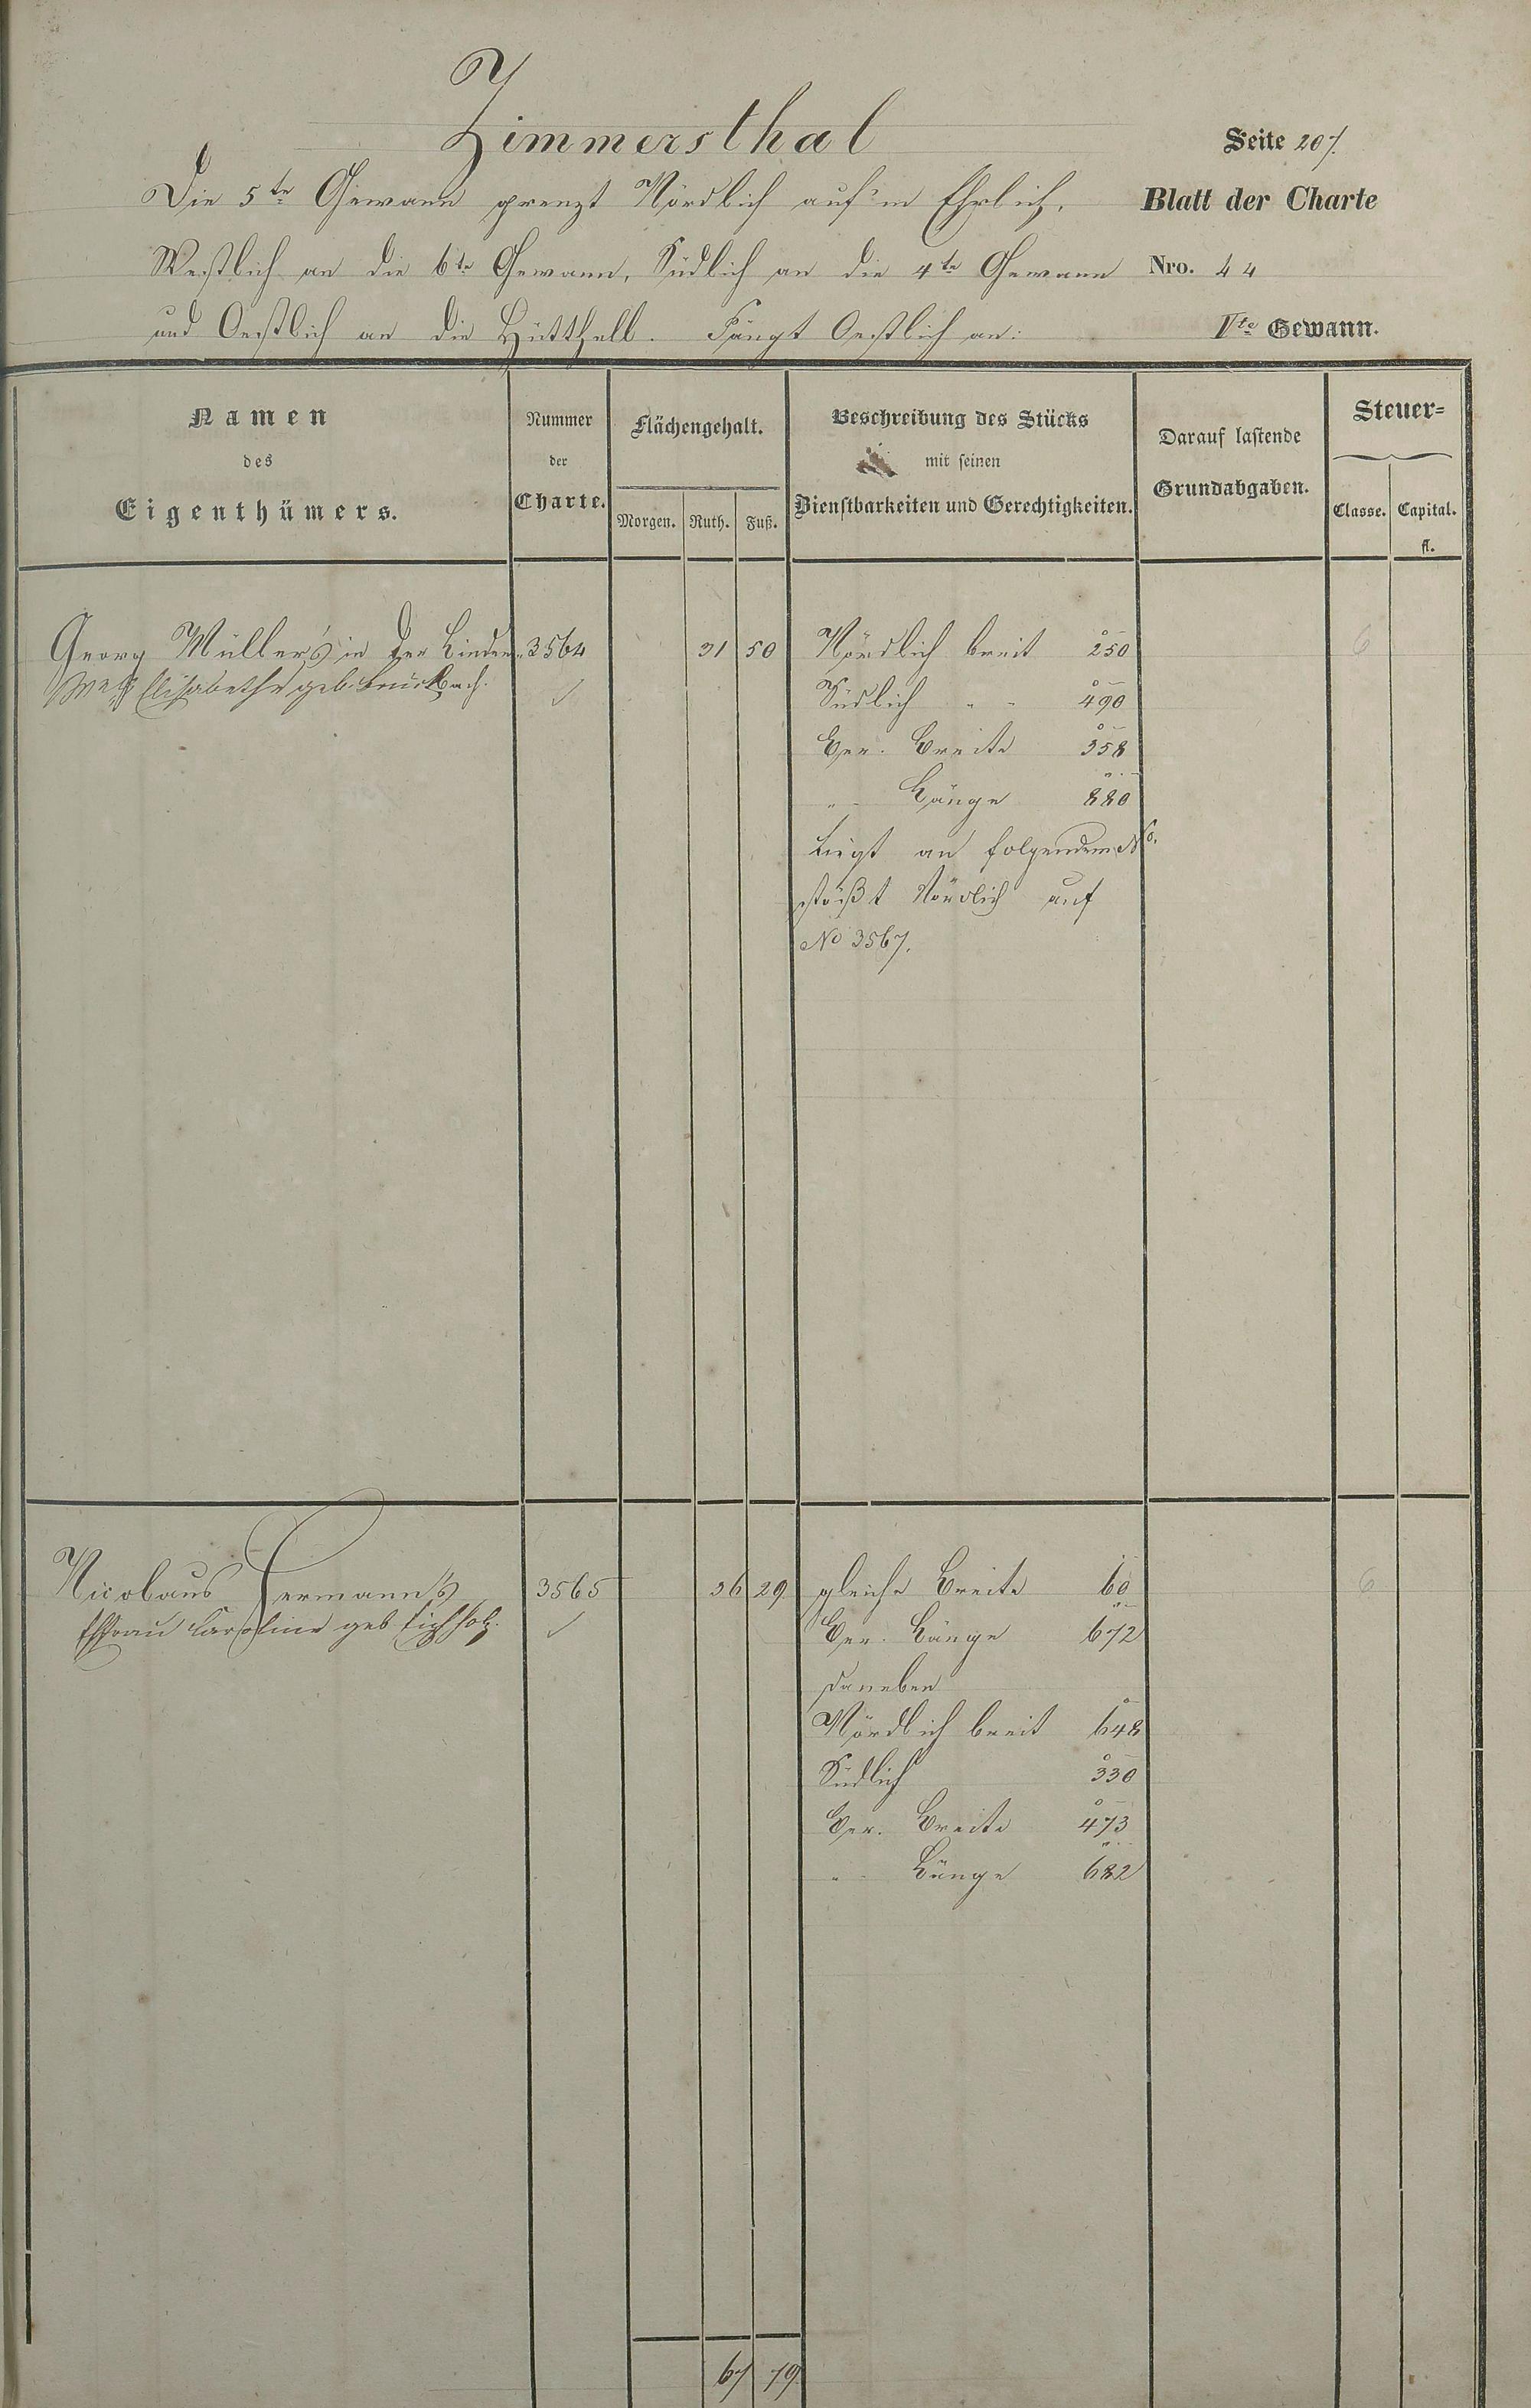 Zimmersthal
Seite 207.
Die 5te Gewann grenzt Nördlich auf'm Ehrlich,
Blatt der Charte
Westlich an die 6te Gewann, Südlich an die 4te Gewann
Nro. 44
und Oestlich an die Hütthell. Fängt Oestlich an:
Vte Gewann.
Namen
des
Eigenthümers.
Nummer
der
Charte.
Flächengehalt.
Morgen. Ruth. Fuß.
Beschreibung des Stücks
mit seinen
Dienstbarkeiten und Gerechtigkeiten.
Darauf lastende
Grundabgaben.
Steuer=
Classe. Capital.
fl.
Georg Müller's in der Linden 3564 31 50 Nördlich breit 250 6
Elisabetha geb. ✓ Südlich " " 490
Ber. Breite 358
" Länge 880
Liegt an folgendem No.
stößt Nördlich auf
No 3567.
Nicolaus Hermann's 3565 36 29 gleiche Breite 60 6
Ehfrau Caroline geb Eichholz. ✓ Ber. Länge 672
daneben
Nördlich breit 648
Südlich 330
Ber. Breite 473
" Länge 682
67 79.